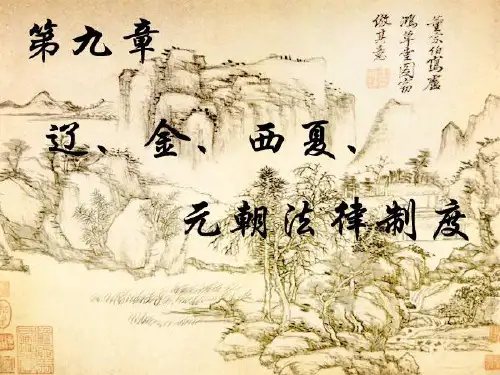 第九章
辽、金、西夏、
元朝法律制度